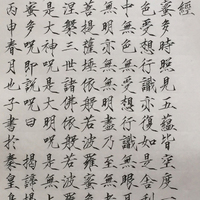 經
蜜多時照見五蘊皆空度一
色受想行識亦復如是舍利
中無色無受想行識無眼耳
無無明亦無無明盡乃至無
菩提薩埵依般若波羅蜜多
涅槃三世諸佛依般若波羅
是大神呪是大明呪是無
多呪即説呪曰 揭諦揭
丙申